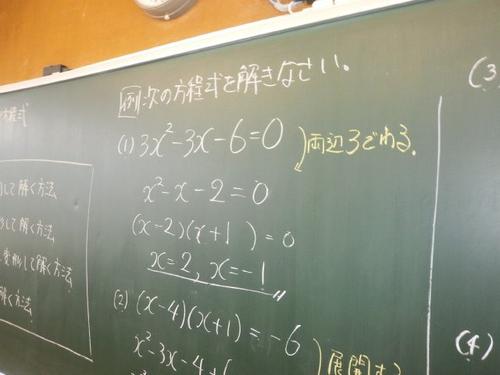 方程式
して解く方法
して解く方法
変形して解く方法
解く方法
例 次の方程式を解きなさい。
(1) 3x²-3x-6=0
両辺3でわる。
x²-x-2=0
(x-2)(x+1)=0
x=2, x=-1
(2) (x-4)(x+1)=-6
x²-3x-4+6
展開す
(3)
(4)